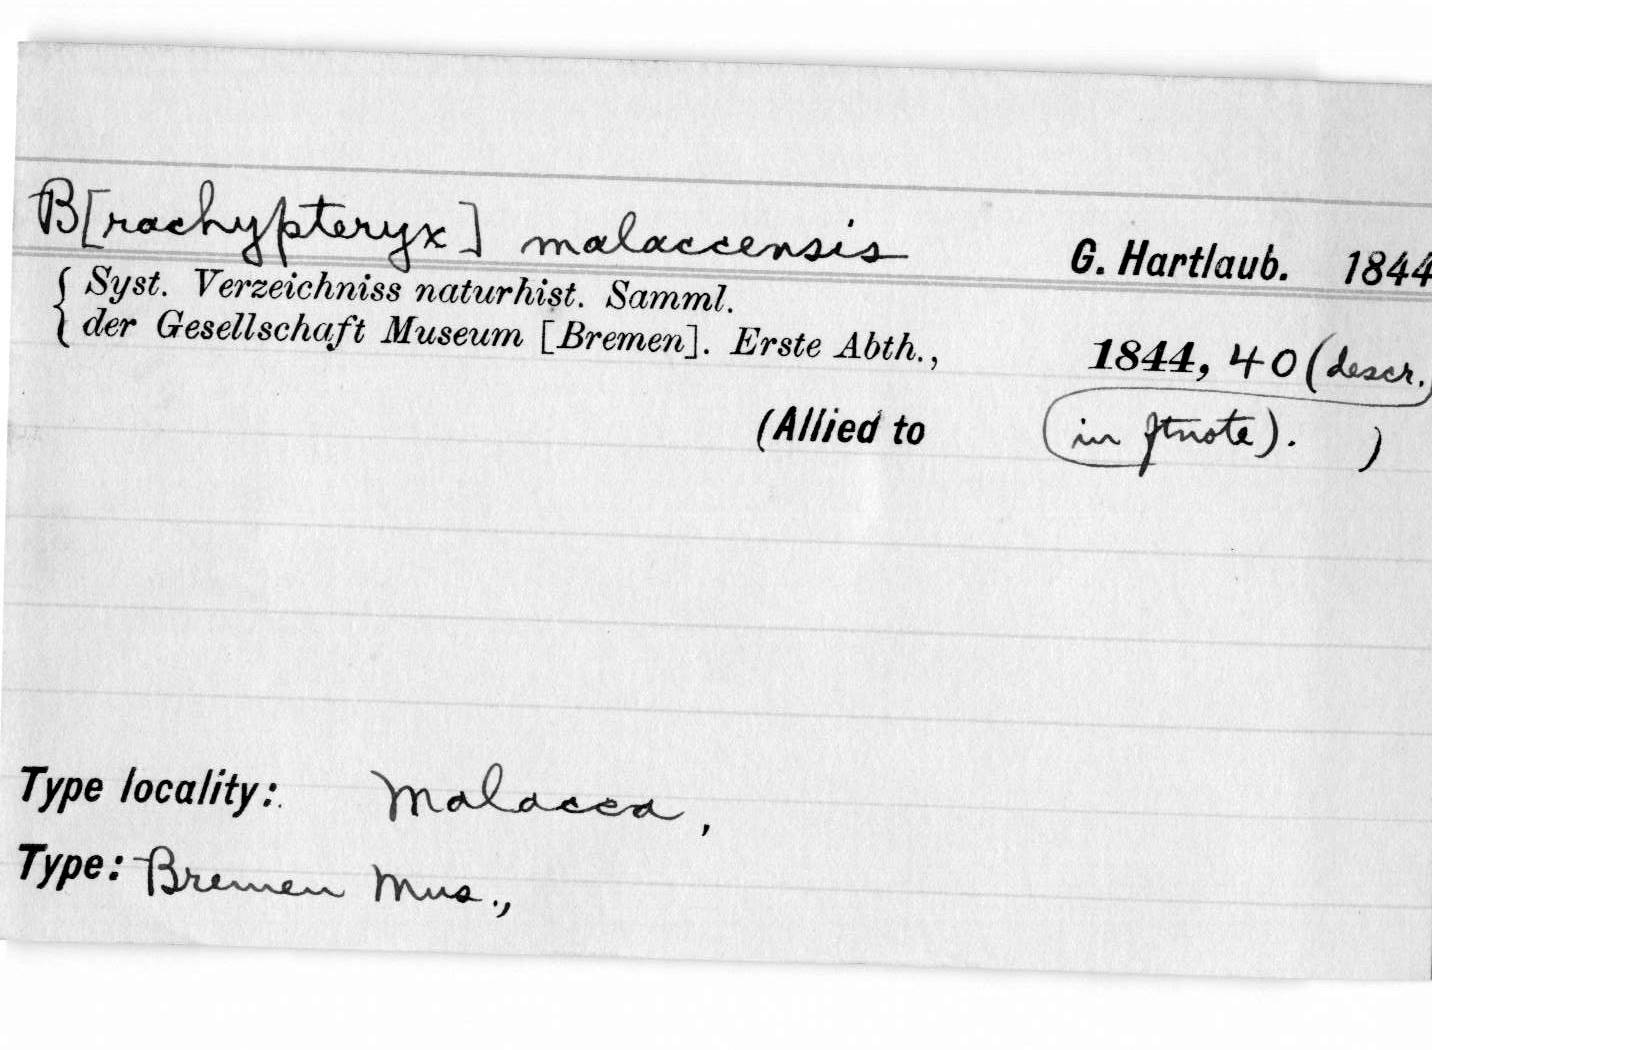 B[rachypteryx] malaccensis G. Hartlaub. 1844
Syst. Verzeichniss naturhist. Samml.
der Gesellschaft Museum [Bremen]. Erste Abth., 1844, 40 (descr.
(Allied to in ftnote). )
Type locality: Malacca,
Type: Bremen Mus.,